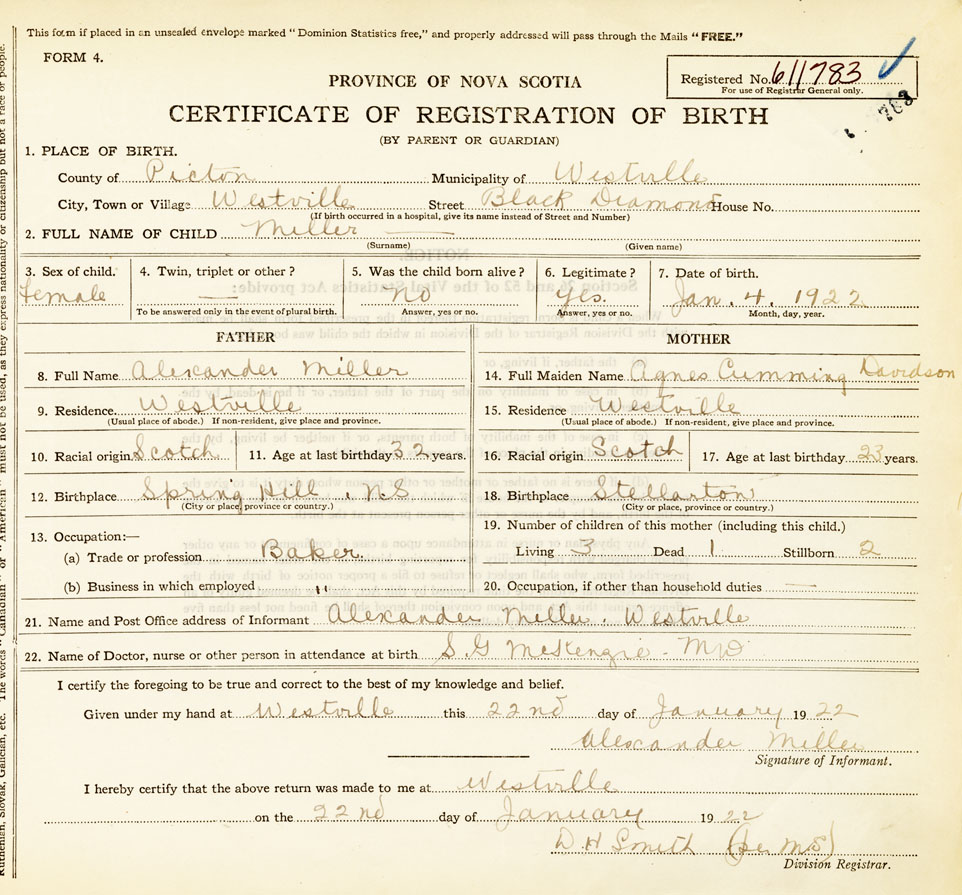 This form if placed in an unsealed envelope marked "Dominion Statistics free," and properly addressed will pass through the Mails "FREE."
FORM 4.
Registered No. 611783
For use of Registrar General only.
783
PROVINCE OF NOVA SCOTIA
CERTIFICATE OF REGISTRATION OF BIRTH
(BY PARENT OR GUARDIAN)
1. PLACE OF BIRTH.
County of Picton Municipality of Westville
City, Town or Village Westville Street Black Diamond House No.
(If birth occurred in a hospital, give its name instead of Street and Number)
2. FULL NAME OF CHILD Miller —
(Surname) (Given name)
3. Sex of child. 4. Twin, triplet or other? 5. Was the child born alive? 6. Legitimate? 7. Date of birth.
female — No Yes. Jan. 4. 1922
To be answered only in the event of plural birth. Answer, yes or no. Answer, yes or no. Month, day, year.
FATHER MOTHER
8. Full Name Alexander Miller 14. Full Maiden Name Agnes Cumming Davidson
9. Residence Westville 15. Residence Westville
(Usual place of abode.) If non-resident, give place and province. (Usual place of abode.) If non-resident, give place and province.
10. Racial origin Scotch 11. Age at last birthday 32 years. 16. Racial origin Scotch 17. Age at last birthday 23 years.
12. Birthplace Spring Hill, N.S 18. Birthplace Stellarton
(City or place, province or country.) (City or place, province or country.)
13. Occupation:— 19. Number of children of this mother (including this child.)
(a) Trade or profession Baker. Living 3 Dead 1 Stillborn 2
(b) Business in which employed " 20. Occupation, if other than household duties —
21. Name and Post Office address of Informant Alexander Miller. Westville
22. Name of Doctor, nurse or other person in attendance at birth S. G McKenzie - MD
I certify the foregoing to be true and correct to the best of my knowledge and belief.
Given under my hand at Westville this 22nd day of January 1922
Alexander Miller
Signature of Informant.
I hereby certify that the above return was made to me at Westville
on the 22nd day of January 1922
D. H Smith (per M.S)
Division Registrar.